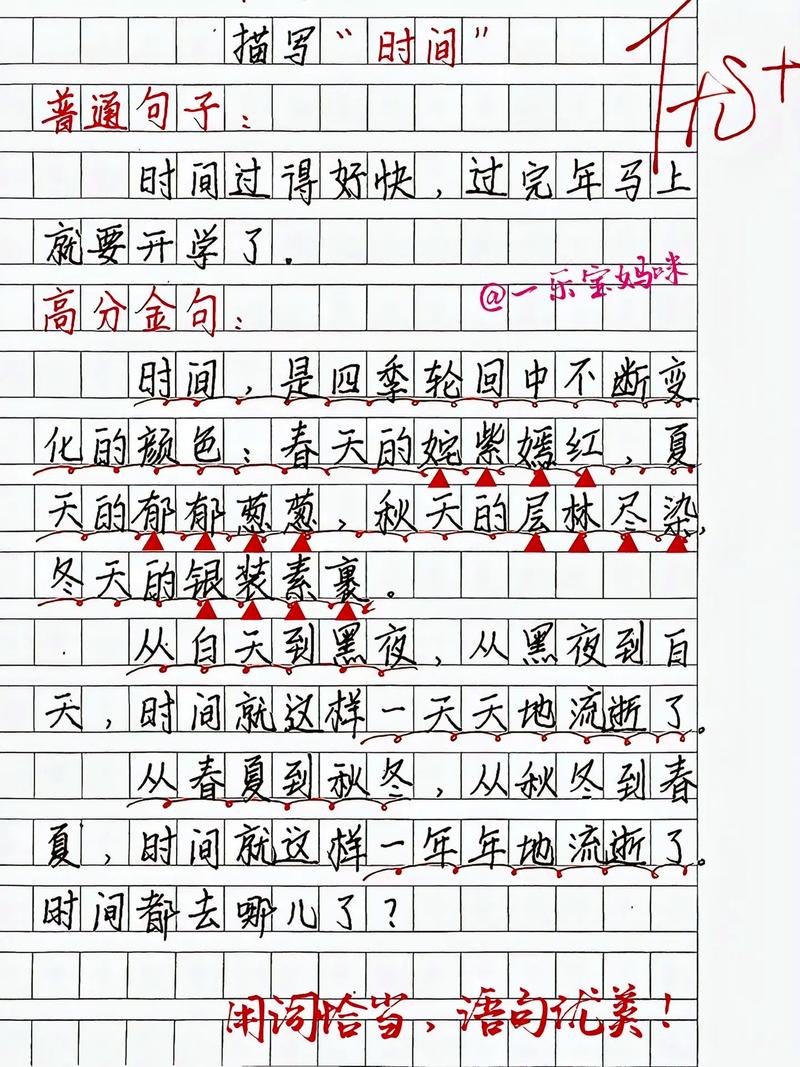 描写“时间”
普通句子：
时间过得好快，过完年马上
就要开学了。
@一乐宝妈咪
高分金句：
时间，是四季轮回中不断变
化的颜色：春天的姹紫嫣红，夏
天的郁郁葱葱，秋天的层林尽染，
冬天的银装素裹。
从白天到黑夜，从黑夜到白
天，时间就这样一天天地流逝了。
从春夏到秋冬，从秋冬到春
夏，时间就这样一年年地流逝了。
时间都去哪儿了？
用词恰当，语句优美！